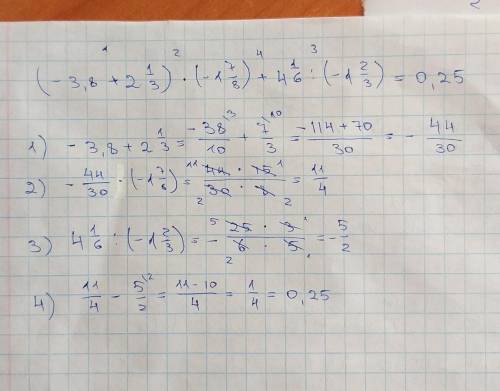 1 2 4 3
(-3,8 + 2 1/3) · (-1 7/8) + 4 1/6 : (-1 2/3) = 0,25
1) -3,8 + 2 1/3 = -38\3/10 + 7\10/3 = (-114+70)/30 = -44/30
2) -44/30 · (-1 7/8) = 11 44 · 15 1/2 30 · 8 2 = 11/4
3) 4 1/6 : (-1 2/3) = - 5 25 · 3 1/2 6 · 5 1 = -5/2
4) 11/4 - 5\2/2 = (11-10)/4 = 1/4 = 0,25